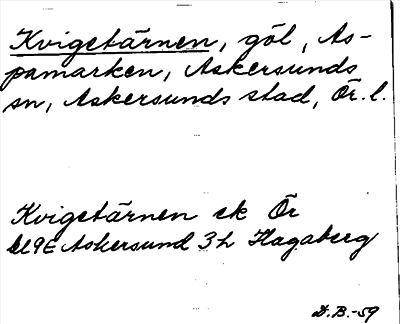 Kvigetärnen, göl, As-
pamarken, Askersunds
sn, Askersunds stad, Ör. l.
Kvigetärnen ek Ör
9E Askersund 3h Hagaberg
D.B.-59